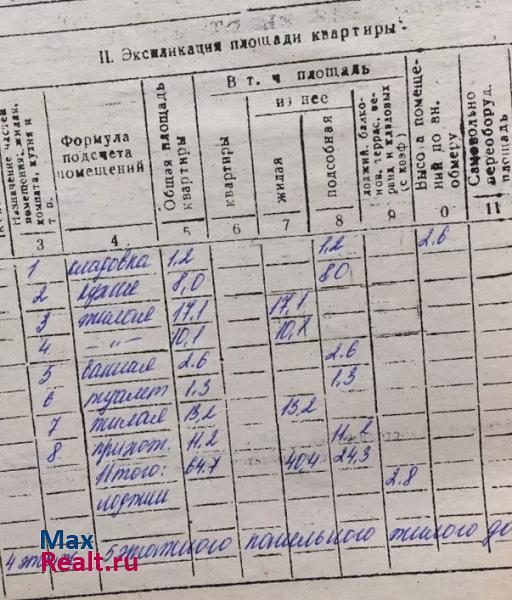 II. Экспликация площади квартиры
В т. ч площадь
из нее
Назначение частей помещения, жилая, комната, кухня и т п.
Формула подсчета помещений
Общая площадь квартиры
квартиры
жилая
подсобная
лоджий, балконов, террас, веранд и кладовых (с коэф)
Высота помещений по вн. обмеру
Самовольно переоборуд. площадь
3 4 5 6 7 8 9 0 11
1 кладовка 1.2 1,2 2.6
2 кухня 8,0 8.0
3 жилая 17.1 17,1
4 —"— 10,1 10,1
5 ванная 2.6 2.6
6 туалет 1.3 1.3
7 жилая 13.2 13.2
8 прихож. 11.2 11.2
Итого: 64.7 40.4 24,3
лоджии 2.8
4 этаж 5 этажного панельного жилого до
Max
Realt.ru